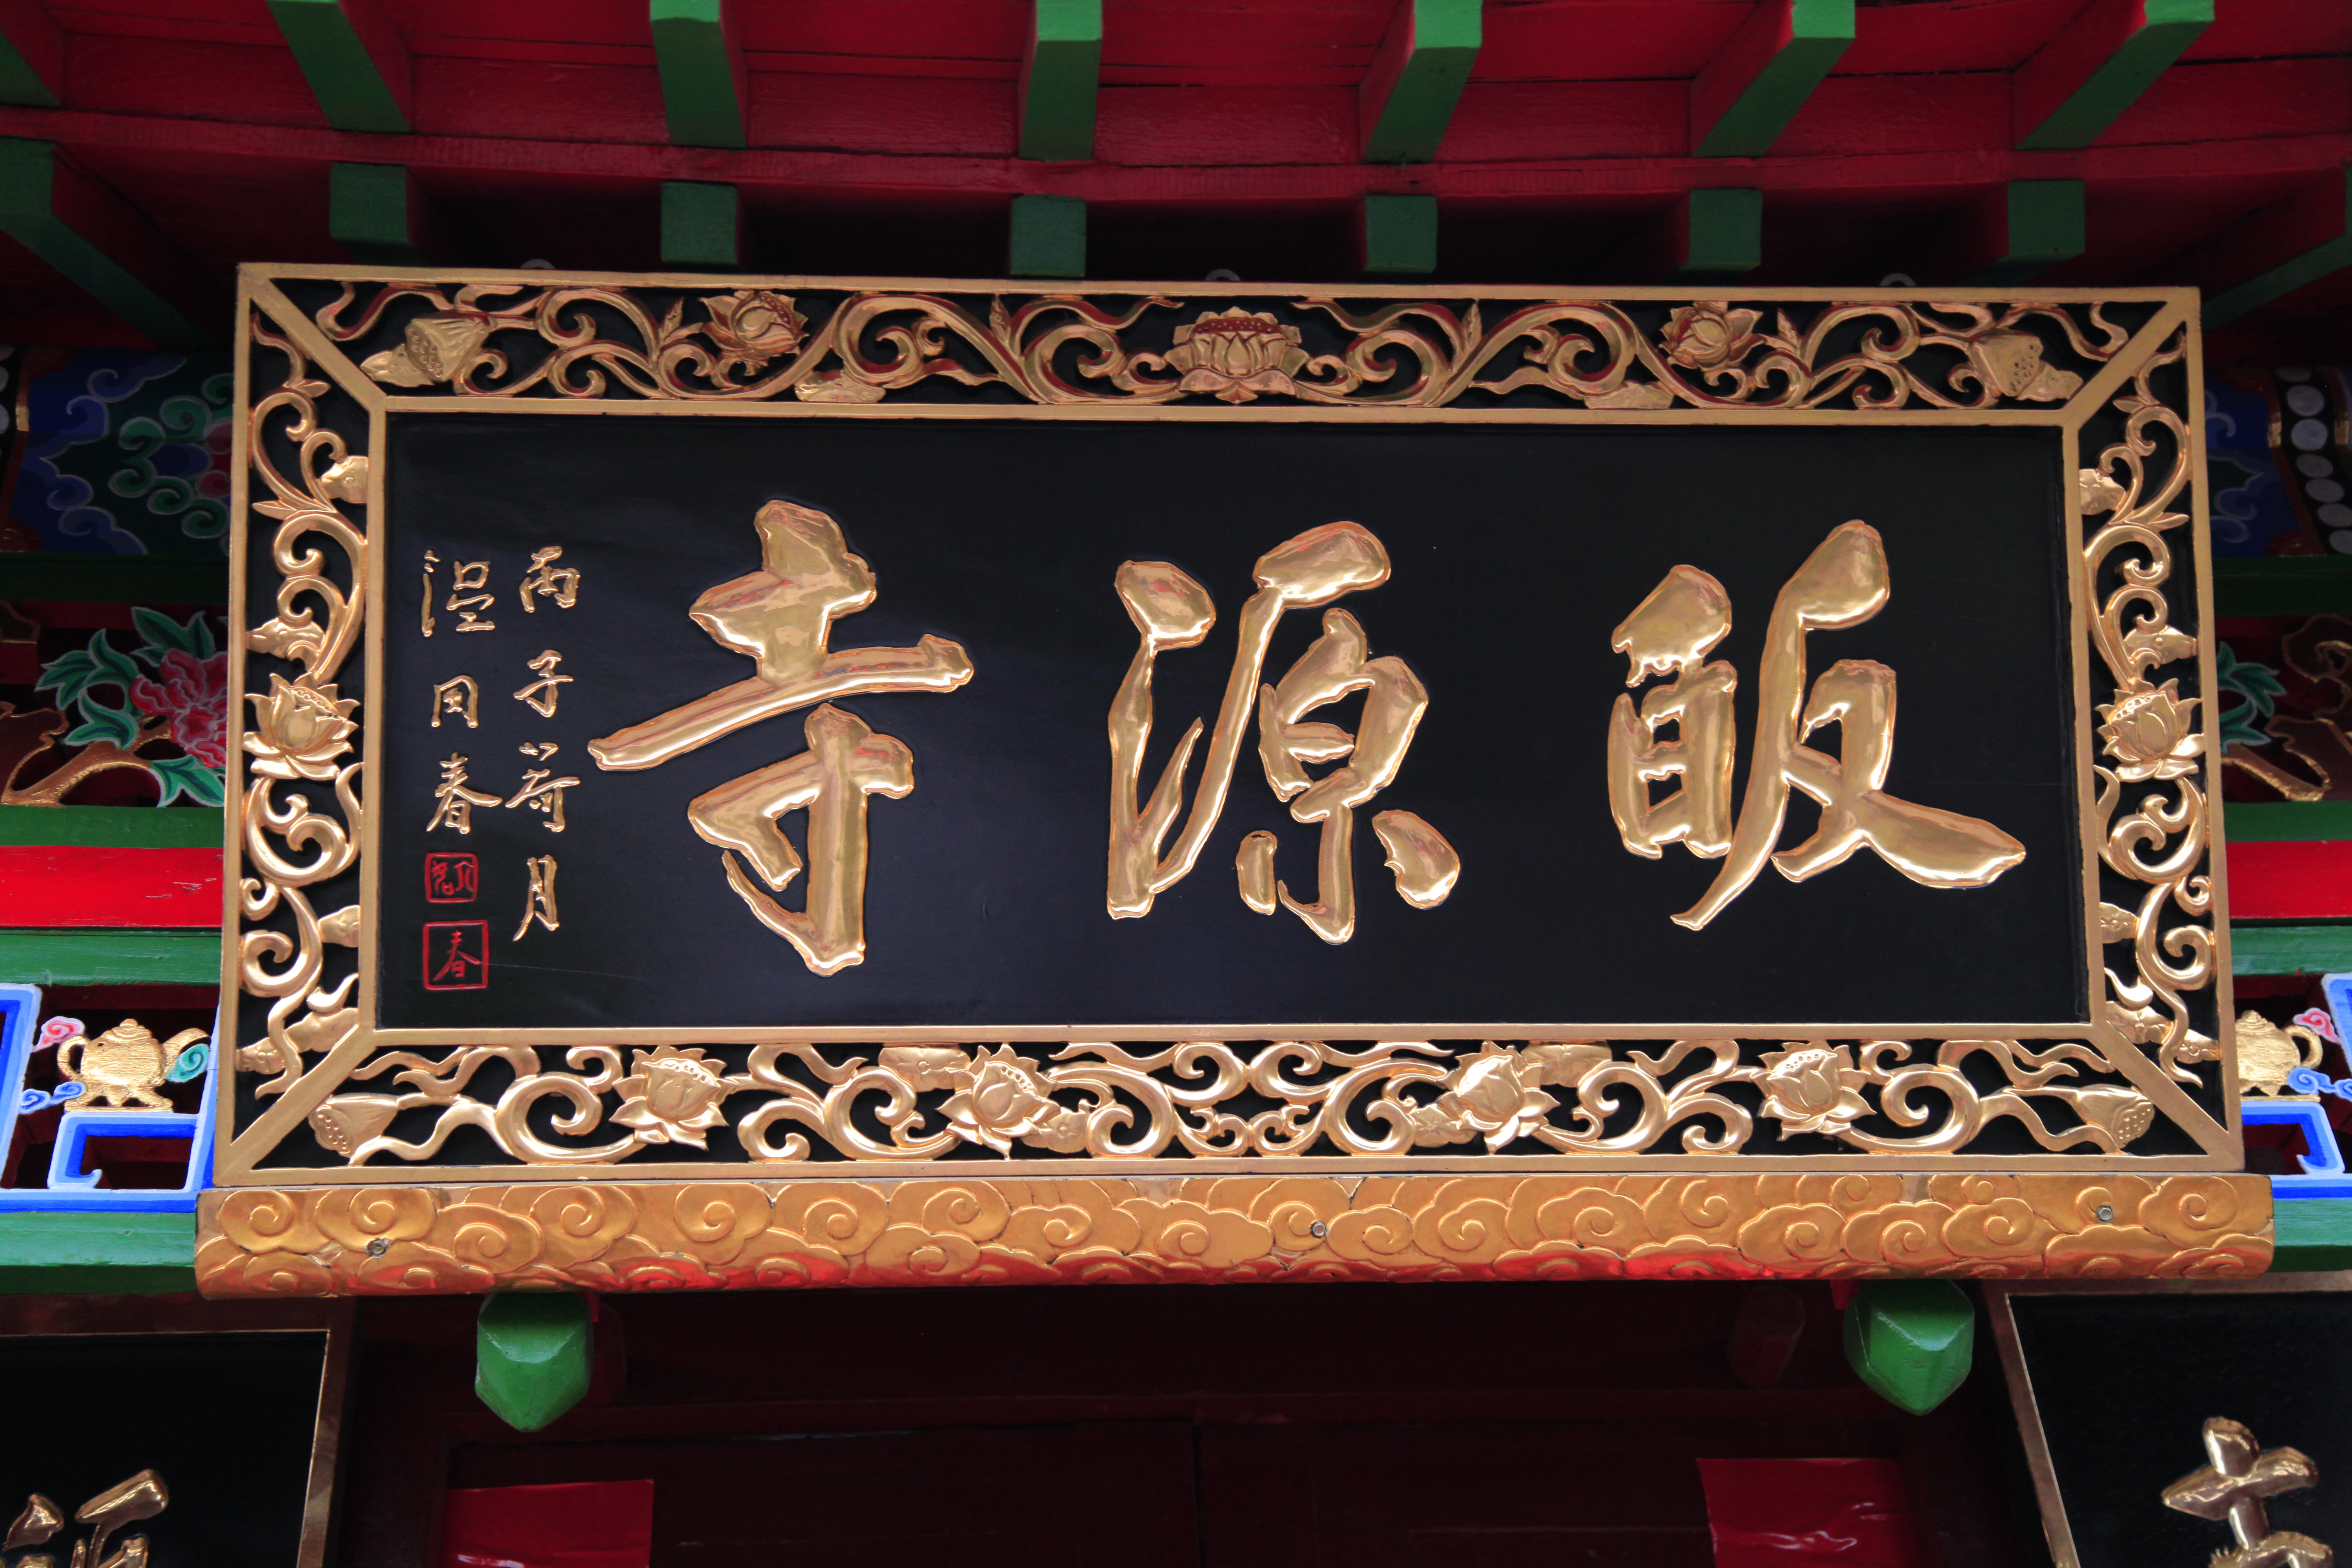 皈源寺
丙子荷月
田春
春